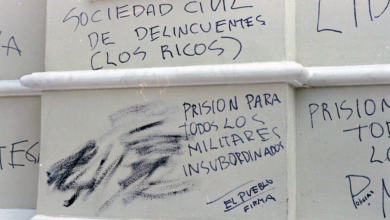 SOCIEDAD CIVIL
DE DELINCUENTES
(LOS RICOS)
PRISION PARA
TODOS LOS
MILITARES
INSUBORDINADOS
EL PUEBLO
FIRMA
PRISION